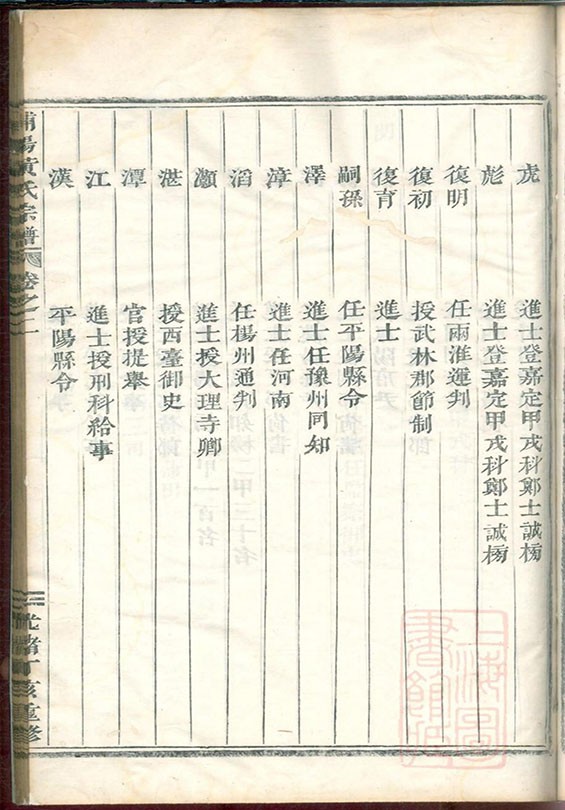 虎 進士登嘉定甲戌科鄭士誠榜
彪 進士登嘉定甲戌科鄭士誠榜
復明 任兩淮運判
復初 授武林郡節制
復育 進士
嗣孫 任平陽縣令
澤 進士任豫州同知
漳 進士任河南
滔 任楊州通判
灝 進士授大理寺卿
湛 授西臺御史
潭 官授提舉
江 進士授刑科給事
漢 平陽縣令
浦陽黃氏宗譜 卷之二
光緒丁亥重修
上海圖書館藏